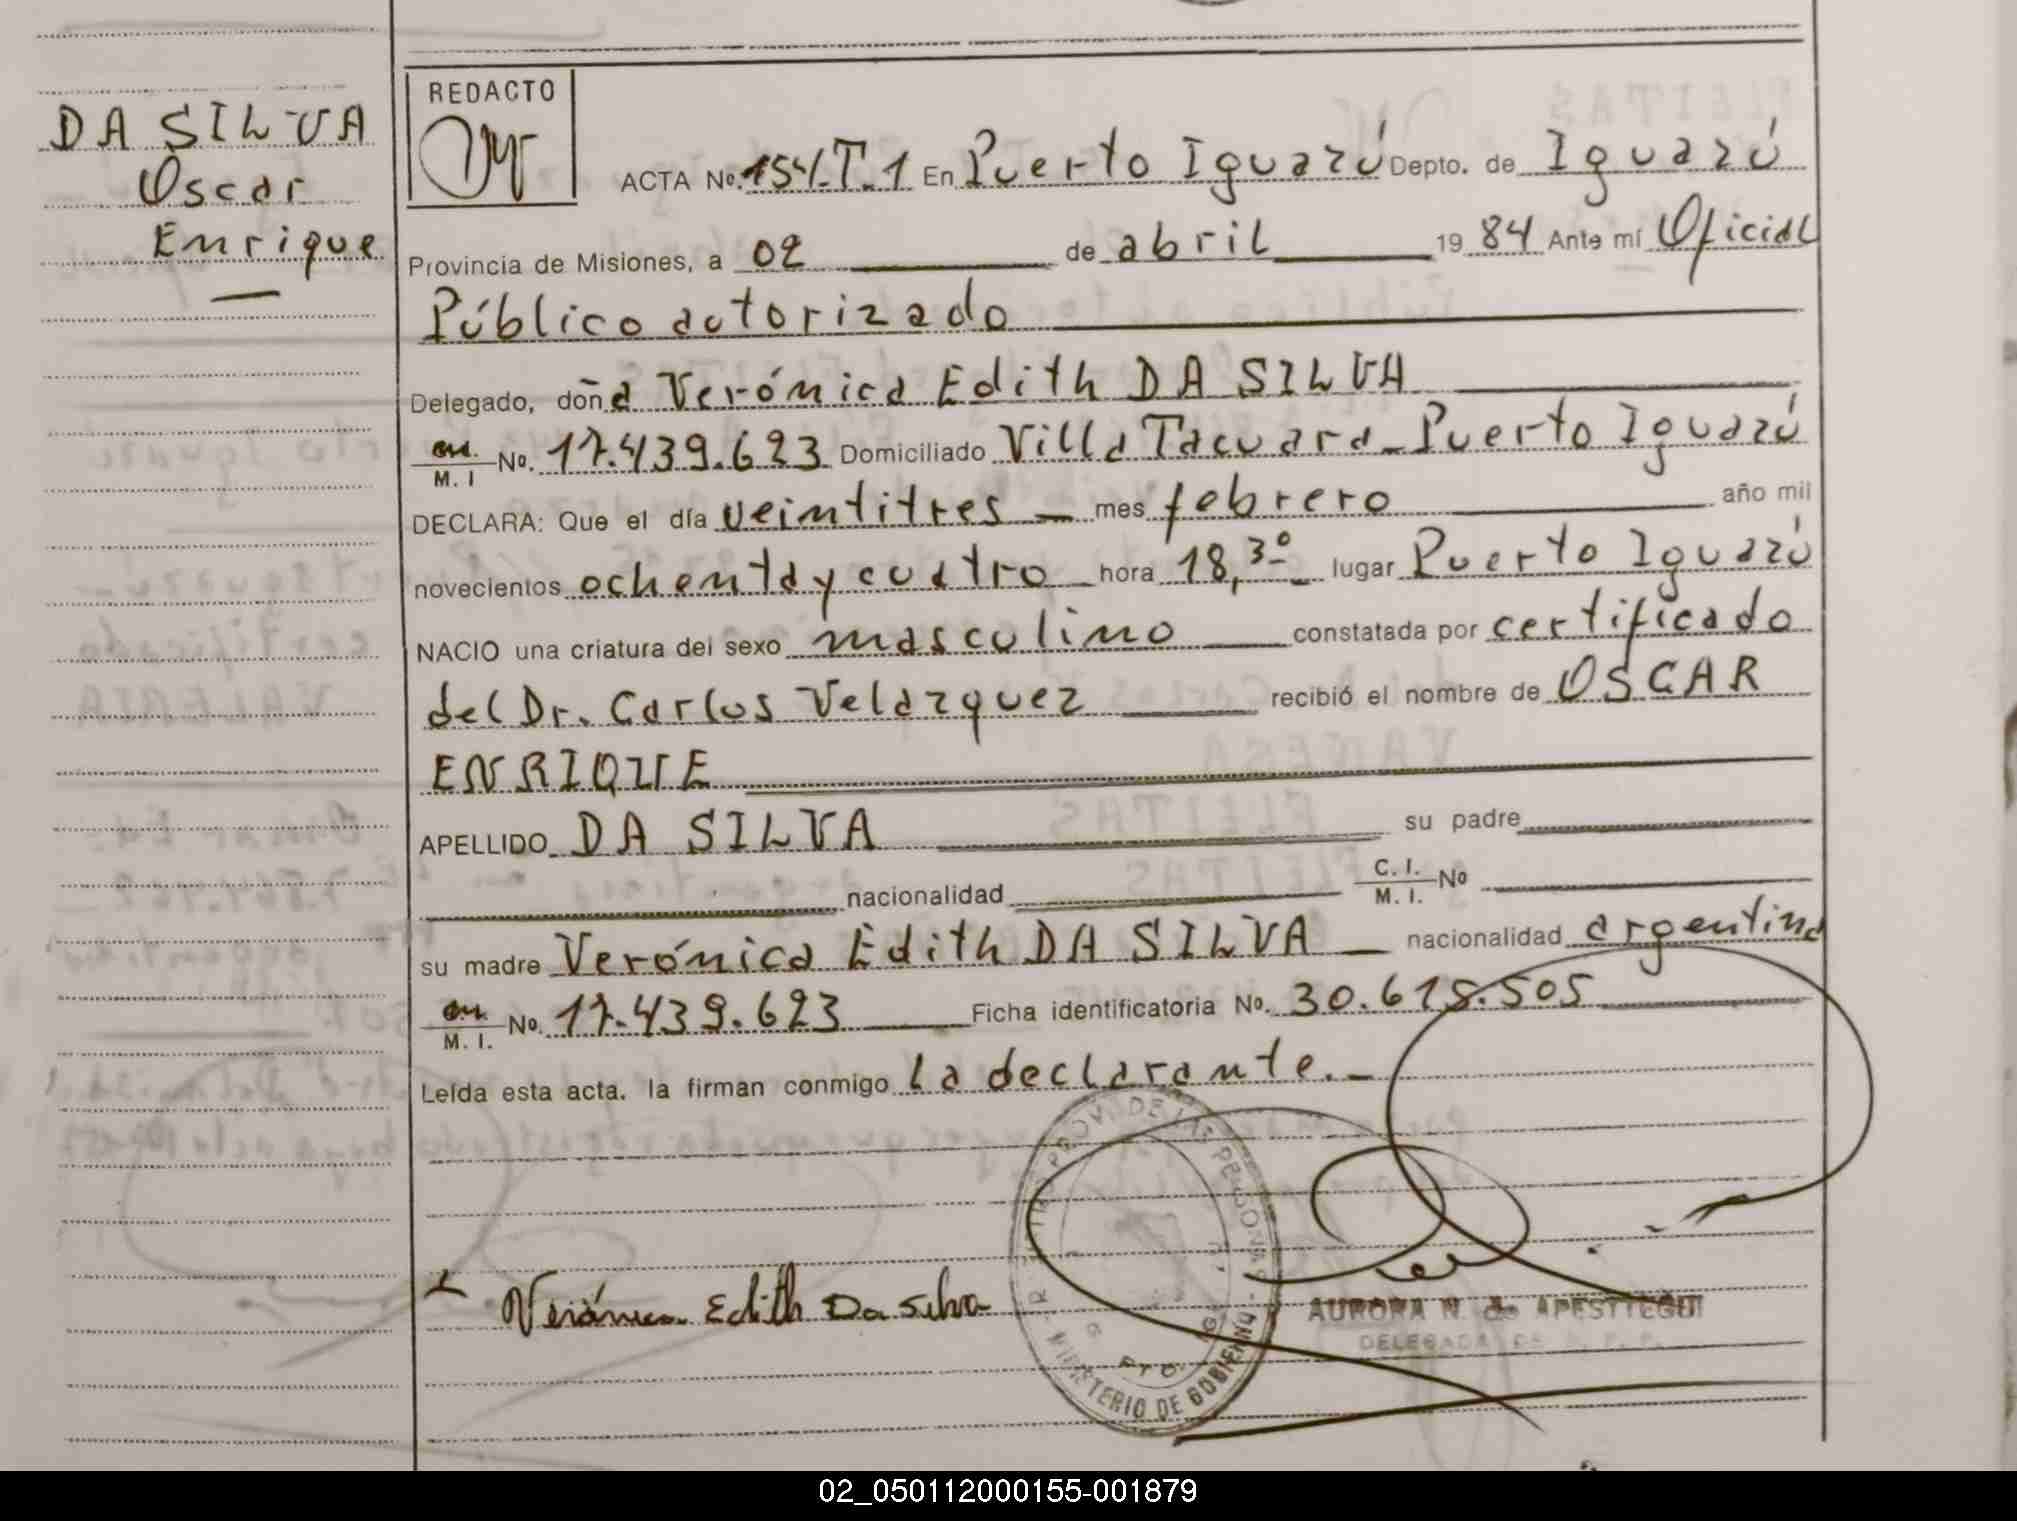 DA SILVA
Oscar
Enrique
REDACTO
ACTA No. 154.T.1 En Puerto Iguazú Depto. de Iguazú
Provincia de Misiones, a 02 de abril 1984 Ante mí Oficial
Público autorizado
Delegado, doña Verónica Edith DA SILVA
M. I No. 17.439.623 Domiciliado Villa Tacuara - Puerto Iguazú
DECLARA: Que el día veintitres - mes febrero año mil
novecientos ochenta y cuatro hora 18,30 lugar Puerto Iguazú
NACIO una criatura del sexo masculino constatada por certificado
del Dr. Carlos Velazquez recibió el nombre de OSCAR
ENRIQUE
APELLIDO DA SILVA su padre
nacionalidad C. I. M. I. No
su madre Verónica Edith DA SILVA nacionalidad argentina
M. I. No. 17.439.623 Ficha identificatoria No. 30.615.505
Leída esta acta. la firman conmigo la declarante.-
Verónica Edith Da Silva
MINISTERIO DE GOBIERNO
AURORA N. de APESTTEGUI
DELEGADA DE
02_050112000155-001879